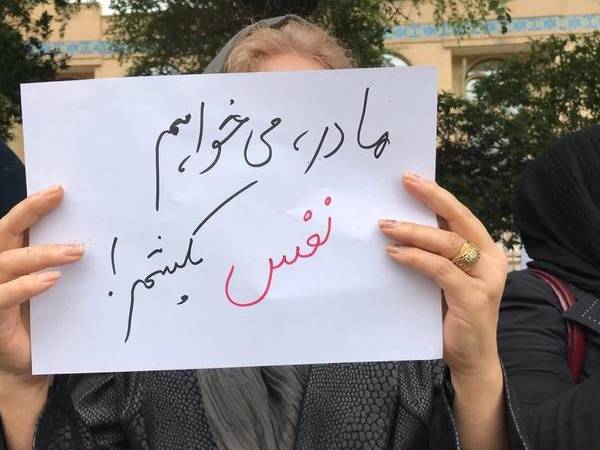 مادر، می‌خواهیم
نفس بکشیم!